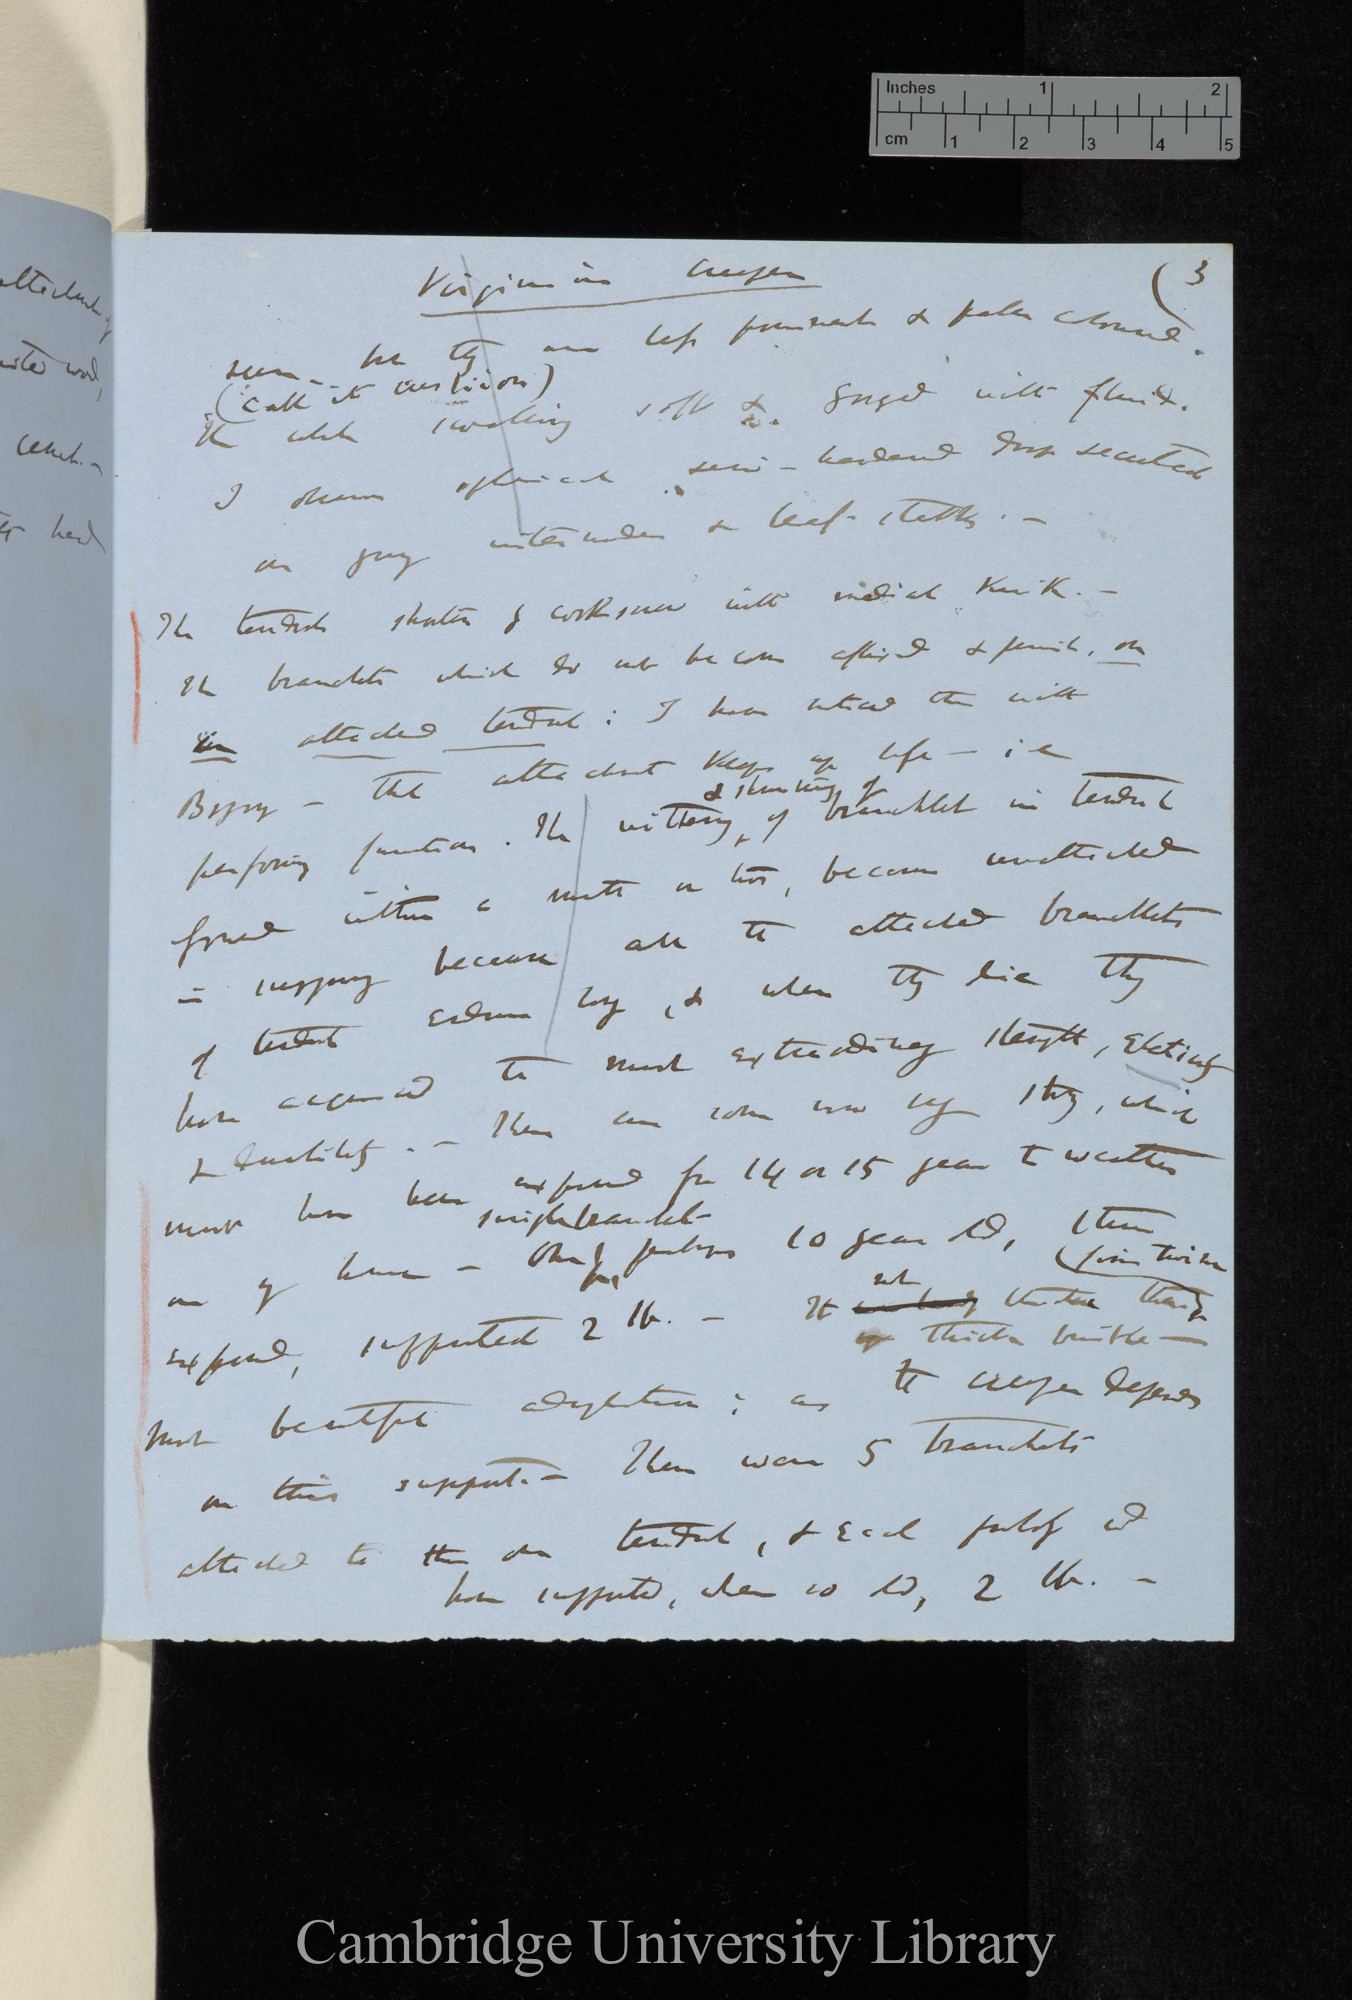 Inches 1 2
cm 1 2 3 4 5
Virginian Creeper
(3
seen – but they are less prominent & paler coloured.
(call it cushion)
The whole swelling soft & gorged with fluid.
I observe spherical semi-hardened drops secreted
on young internodes & leaf-stalks. –
The tendrils shorten & corkscrew with
The branchlets which do not become affixed & perish, on
an attached tendril: I have noticed this with
Bignon – the attachment keeps up life – i e
performing function. The withering & shrinking of branchlet in tendril
formed within a month or two, become unattached
is surprising because all the attached branchlets
of tendril endure long, & when they die they
have acquired the most extraordinary strength, elasticity
& ductility. – There are some now very strong, which
must have been exposed for 14 or 15 years to weather
on my house – One single branchlet perhaps 10 years old, & thus
exposed, supported 2 lb. – It not thicker than
thick bristle –
(some twine
Most beautiful adaptation; as the creeper depends
on this support. – There were 5 branchlets
attached to this one tendril, & each probably wd
have supported, when 10 old, 2 lb. –
attached
wood,
cement. –
had
Cambridge University Library